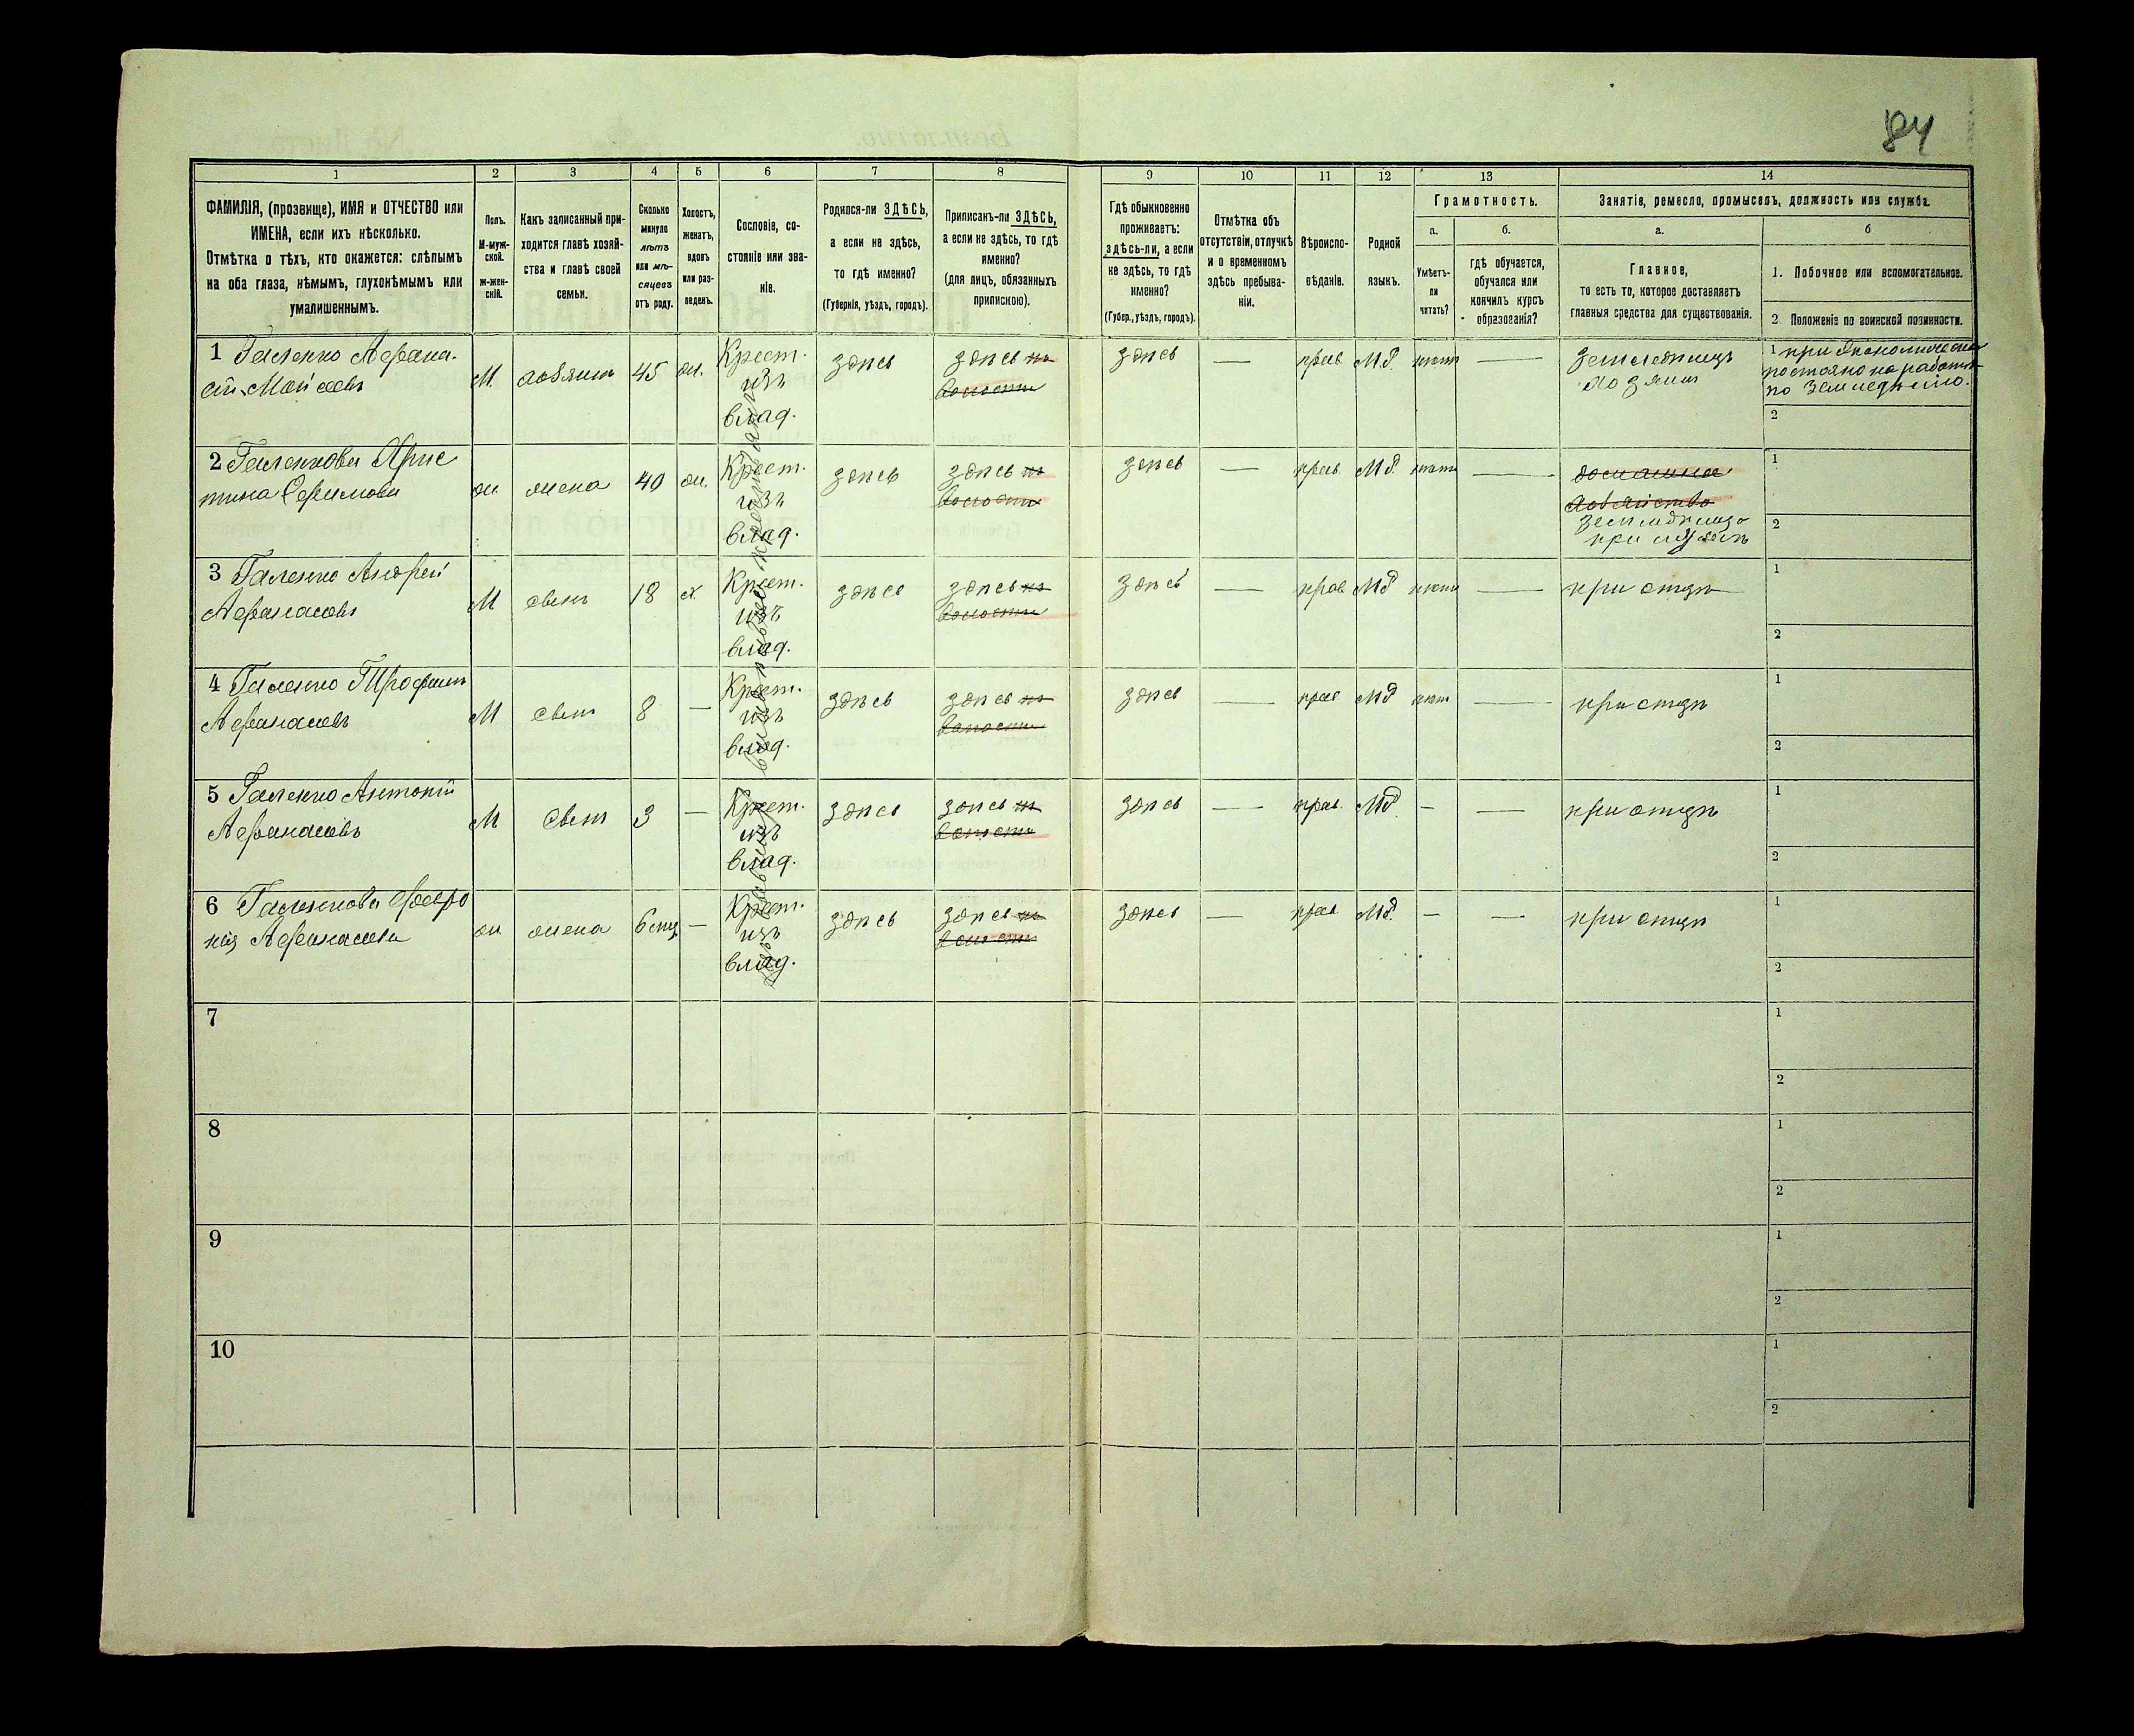 84
1 2 3 4 5 6 7 8 9 10 11 12 13 14
ФАМИЛІЯ, (прозвище), ИМЯ и ОТЧЕСТВО или
ИМЕНА, если ихъ нѣсколько.
Отмѣтка о тѣхъ, кто окажется: слѣпымъ
на оба глаза, нѣмымъ, глухонѣмымъ или
умалишеннымъ.
Полъ.
М-муж-
ской.
ж-жен-
скій.
Какъ записанный при-
ходится главѣ хозяй-
ства и главѣ своей
семьи.
Сколько
минуло
лѣтъ
или мѣ-
сяцевъ
отъ роду.
Холостъ,
женатъ,
вдовъ
или раз-
веденъ.
Сословіе, со-
стояніе или зва-
ніе.
Родился-ли ЗДѢСЬ,
а если не здѣсь,
то гдѣ именно?
(Губернія, уѣздъ, городъ).
Приписанъ-ли ЗДѢСЬ,
а если не здѣсь, то гдѣ
именно?
(для лицъ, обязанныхъ
припискою).
Гдѣ обыкновенно
проживаетъ:
здѣсь-ли, а если
не здѣсь, то гдѣ
именно?
(Губер., уѣздъ, городъ).
Отмѣтка объ
отсутствіи, отлучкѣ
и о временномъ
здѣсь пребыва-
ніи.
Вѣроиспо-
вѣданіе.
Родной
языкъ.
Грамотность.
а.
Умѣетъ-
ли
читать?
б.
гдѣ обучается,
обучался или
кончилъ курсъ
образованія?
Занятіе, ремесло, промыселъ, должность или служба.
а.
Главное,
то есть то, которое доставляетъ
главныя средства для существованія.
б
1. Побочное или вспомогательное.
2 Положеніе по воинской повинности.
1 Галенко Афана-
сій Моисеевъ
М. хозяинъ 45 ж.
Крест.
изъ
влад.
здѣсь
здѣсь по
волости
здѣсь — прав. М.Р. нѣтъ —
земледѣлецъ
хозяинъ
1
постояно на работѣ
по земледѣлію.
2
2 Галенкова Хрис
тина Ефимова
ж. жена 40 ж.
Крест.
изъ
влад.
здѣсь
здѣсь по
волости
здѣсь — прав. М.Р. нѣтъ —
домашнее
хозяйство
при мужѣ
1
2
3 Галенко Андрей
Афанасіевъ
М сынъ 18 х.
Крест.
изъ
влад.
здѣсь
здѣсь по
волости
здѣсь — прав. М.Р. нѣтъ —
при отцѣ
1
2
4 Галенко Трофимъ
Афанасіевъ
М сынъ 8 —
Крест.
изъ
влад.
здѣсь
здѣсь по
волости
здѣсь — прав. М.Р. нѣтъ —
при отцѣ
1
2
5 Галенко Антоній
Афанасіевъ
М сынъ 3 —
Крест.
изъ
влад.
здѣсь
здѣсь по
волости
здѣсь — прав. М.Р. — —
при отцѣ
1
2
6 Галенкова Февро
нія Афанасіева
ж. жена 6 мѣц. —
Крест.
изъ
влад.
здѣсь
здѣсь по
волости
здѣсь — прав. М.Р. — —
при отцѣ
1
2
7
1
2
8
1
2
9
1
2
10
1
2